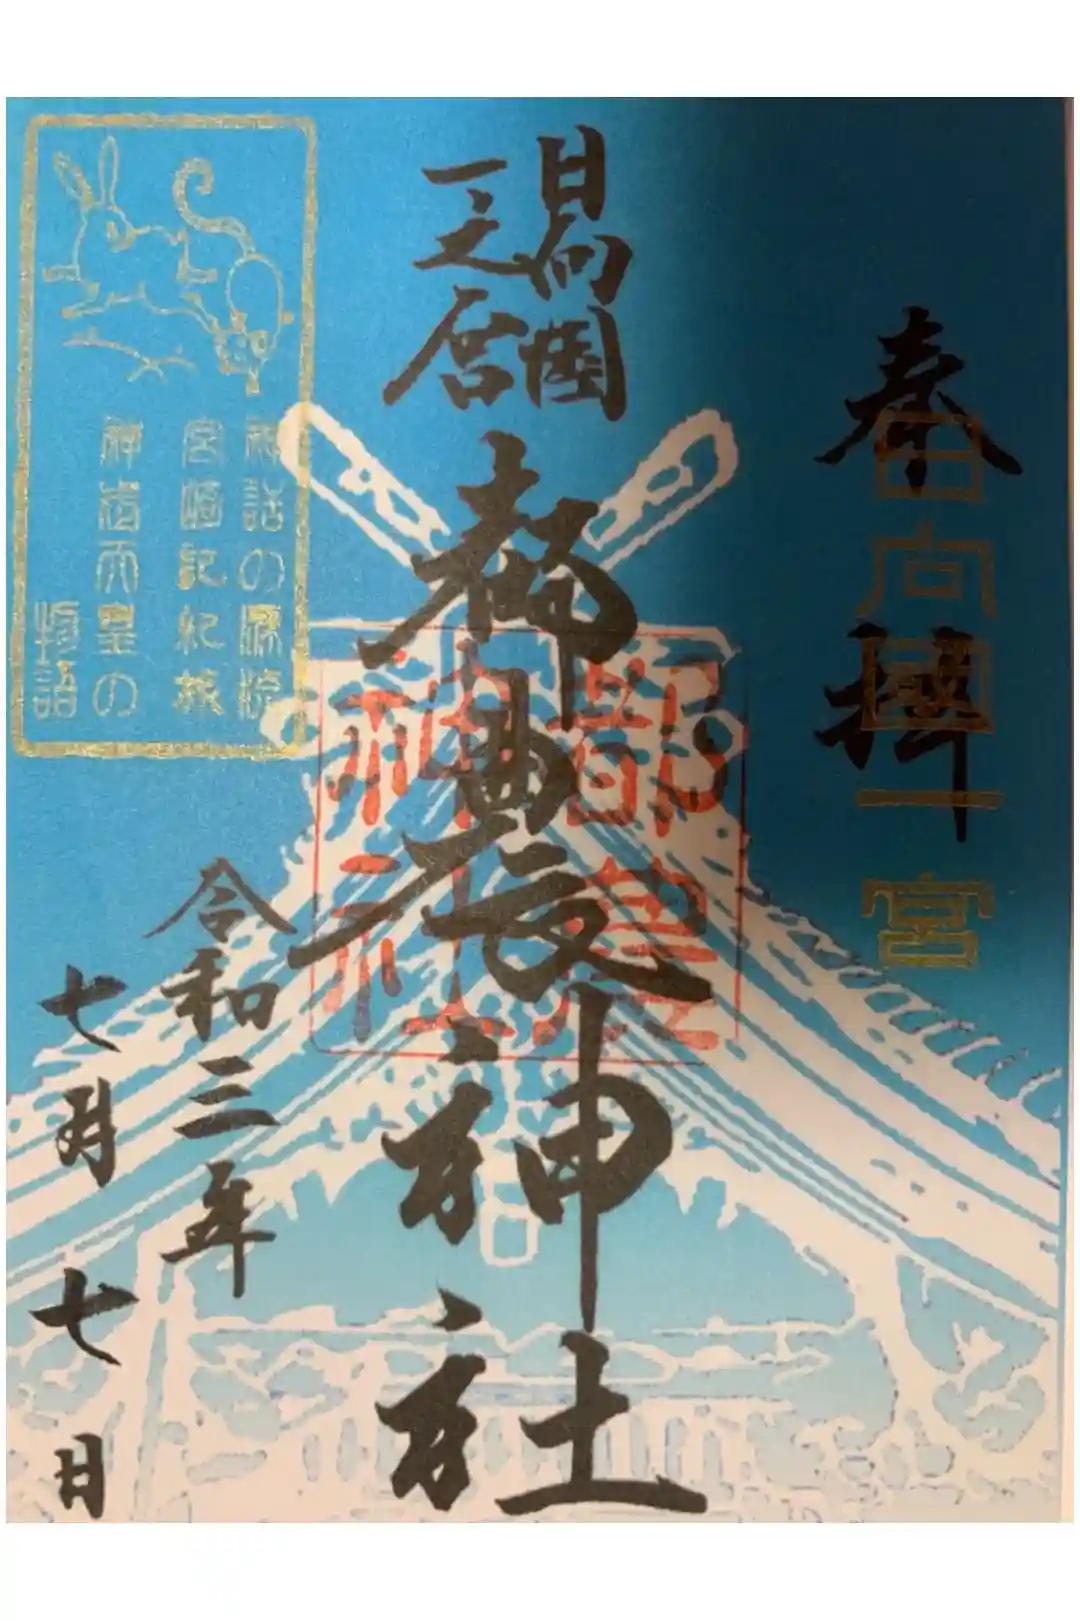 奉拝
日向國一宮
日向國
一之宮
都農神社
都農
神社
令和三年
七月七日
神話の源流
宮崎記紀
神武天皇の
物語